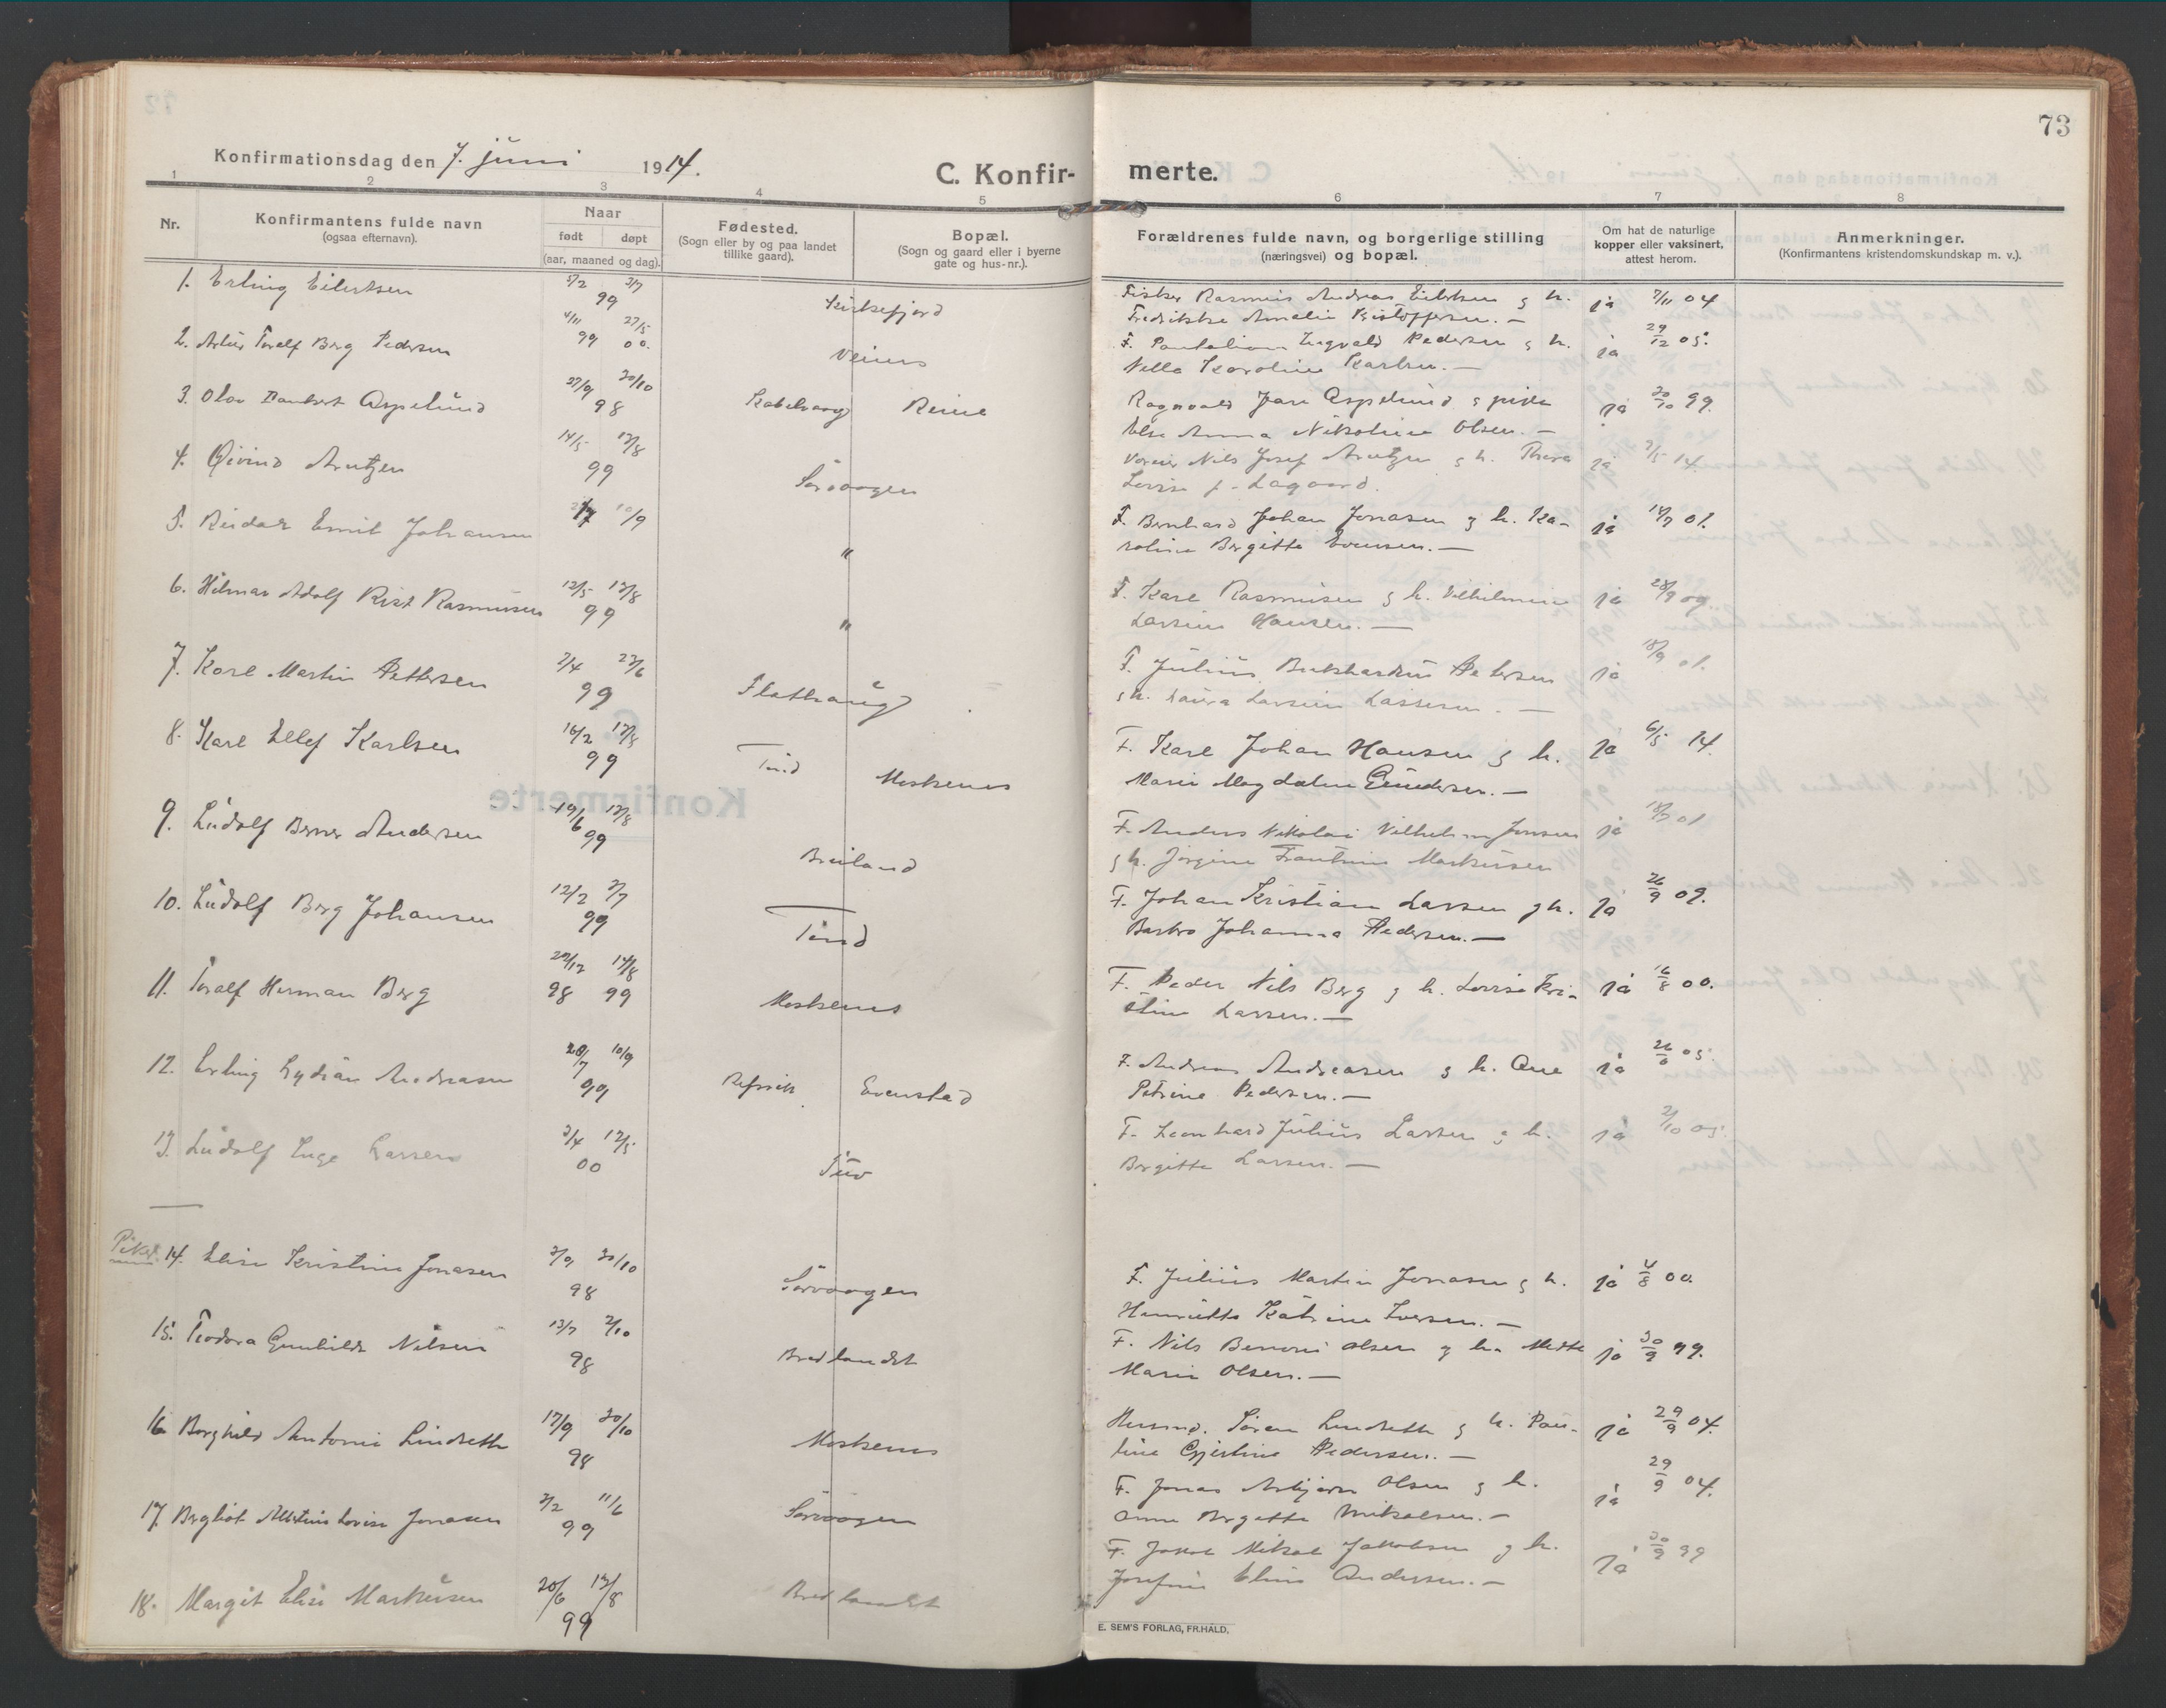 73
Konfirmationsdag den 7. juni 1914.
C. Konfir-
merte.
1 2 3 4 5 6 7 8
Nr.
Konfirmantens fulde navn
(ogsaa efternavn).
Naar
født døpt
(aar, maaned og dag).
Fødested.
(Sogn eller by og paa landet
tillike gaard).
Bopæl.
(Sogn og gaard eller i byerne
gate og hus-nr.).
Forældrenes fulde navn, og borgerlige stilling
(næringsvei) og bopæl.
Om hat de naturlige
kopper eller vaksinert,
attest herom.
Anmerkninger.
(Konfirmantens kristendomskundskap m. v.).
1. Erling Eilertsen 99 Kirkefjord
Fisker Rasmus Andreas Eilertsen g h. ja 7/11 04
Fredrikke Amalie Kristoffersen. —
2. Toralf Berg Pedersen 4/11 99 27/5 00.
F. Ingvald Pedersen g h. ja 29/12 05.
Karoline Karlsen. —
3. Olav Aspelund 27/9 30/10 98 Kabelvaag Reine
Ragnvald Aspelund g pike ja 30/10 99.
Else Anna Nikoline Olsen. —
4. Øivind Arntzen 14/5 13/8 99 Sørvaagen
Nils Josef Arntzen g h. Thora ja 14.
Lovise f. Lagaard.
5. Reidar Emil Johansen 10/9 "
F. Bernhard Johan Jonasen g h. Ka- ja 14/7 01.
roline Birgitte Evensen. —
6. Hilmar Adolf Rist Rasmussen 12/5 13/8 99 "
F. Karl Rasmussen g h. Vilhelmine ja 28/9 09.
Larsine Hansen. —
7. Karl Martin Pettersen 2/4 23/6 99 Flathaug
F. Julius Petersen ja 18/9 01.
g h. Laura Larsine Lassesen. —
8. Karl Ellef Karlsen 16/2 99 Tind Moskenes
F. Karl Johan Hansen g h. ja 6/5 14.
Marie Magdalene Gundersen. —
9. Ludolf Berner Andersen 19/6 13/8 99 Breiland
F. Anders Nikolai Vilhelm Jensen ja 01
g h. Jørgine Markussen
10. Ludolf Berg Johansen 12/2 3/7 99 Tind
F. Johan Kristian Larsen g h. ja 26/9 09.
Barbro Johanna Pedersen. —
11. Toralf Herman Berg 98 14/8 99 Moskenes
F. Peder Nils Berg g h. Lovise Kri- ja 16/8 00.
stine Larsen. —
12. Erling Lydian Andreasen 10/9 99 Refsvik Evenstad
F. Andreas Andreasen g h. Ane ja 05.
Petrine Pedersen. —
13. Ludolf Inge Larsen 3/4 12/5 00 Tuv
F. Leonhard Julius Larsen g h. ja 2/10 05.
Birgitte Larsen. —
Piker.
14. Elise Kristine Jonasen 3/9 30/10 98 Sørvaagen
F. Julius Martin Jonasen g h. ja 4/8 00.
Henriette Katrine Iversen. —
15. Teodora Gunhilde Nilsen 13/7 2/10 98 Bredlandet
F. Nils Benoni Olsen g h. Mette ja 30/9 99.
Marie Olsen. —
16. Borghild Antonie Lindseth 17/9 30/10 98 Moskenes
Husmd. Søren Lindseth g h. Pau- ja 29/9 04.
line Gjertine Pedersen. —
17. Bergliot Lovise Jonasen 3/2 11/6 99 Sørvaagen
F. Jonas Asbjørn Olsen g h. ja 29/9 04.
Anne Birgitte Mikalsen. —
18. Margit Elise Markussen 20/6 13/8 99 Bredlandet
F. Jakob Mikal Jakobsen g h. ja 30/9 99
Josefine Eline Andersen. —
E. SEM'S FORLAG, FR.HALD.